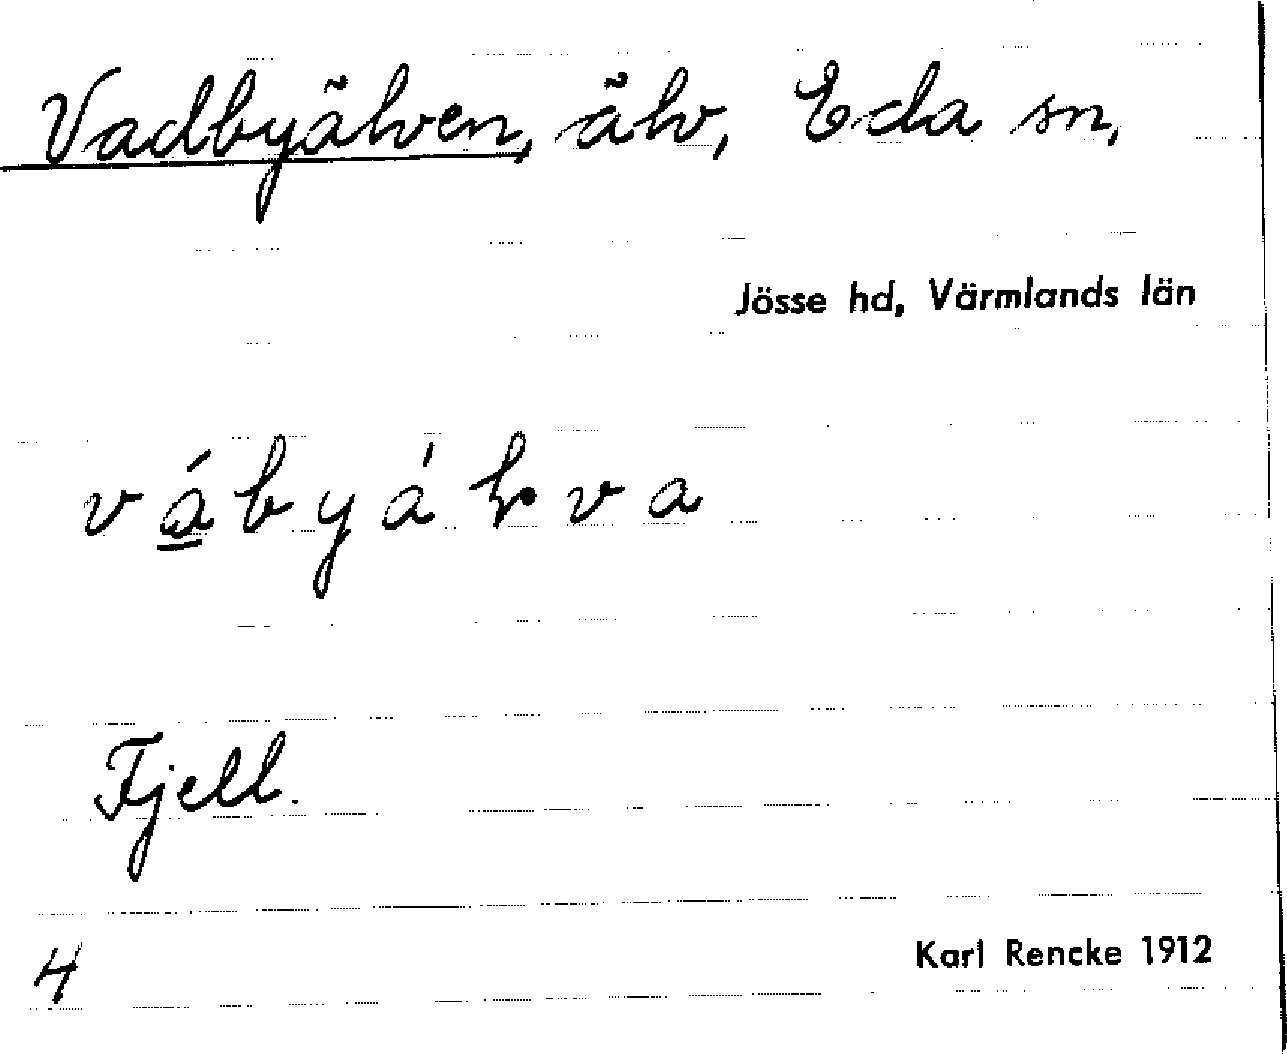 Vadbyälven, älv, Eda sn,
Jösse hd, Värmlands län
Fjell.
4
Karl Rencke 1912